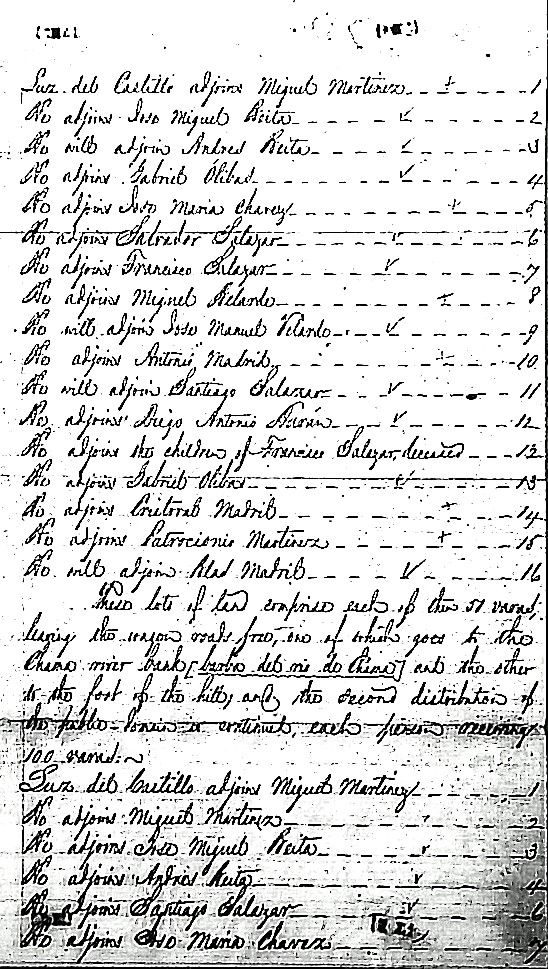 Luz del Castillo adjoins Miguel Martinez 1
No adjoins Jose Miguel Beita 2
No will adjoin Andres Beita 3
No adjoins Gabriel Olibas 4
No adjoins Jose Maria Chavez 5
No adjoins Salvador Salazar 6
No adjoins Francisco Salazar 7
No adjoins Miguel Belarde 8
No will adjoin Jose Manuel Velarde 9
No adjoins Antonio Madrid 10
No will adjoin Santiago Salazar 11
No adjoins Diego Antonio Durán 12
No adjoins the children of Francisco Salazar, deceased 12
No adjoins Gabriel Olibas 13
No adjoins Cristoval Madril 14
No adjoins Patrocionio Martinez 15
No will adjoin Blas Madril 16
These lots of land comprise each of them 51 varas,
leaving the wagon roads free, one of which goes to the
Chama river bank [barba del rio de Chama] and the other
to the foot of the hills, and the second distribution of
the public domain is continued, each person receiving
100 varas.
Luz del Castillo adjoins Miguel Martinez 1
No adjoins Miguel Martinez 2
No adjoins Jose Miguel Beita 3
No adjoins Andres Beita 4
No adjoins Santiago Salazar 6
No adjoins Jose Maria Chavez 7